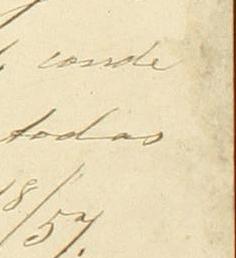 conde
todas
18/57.